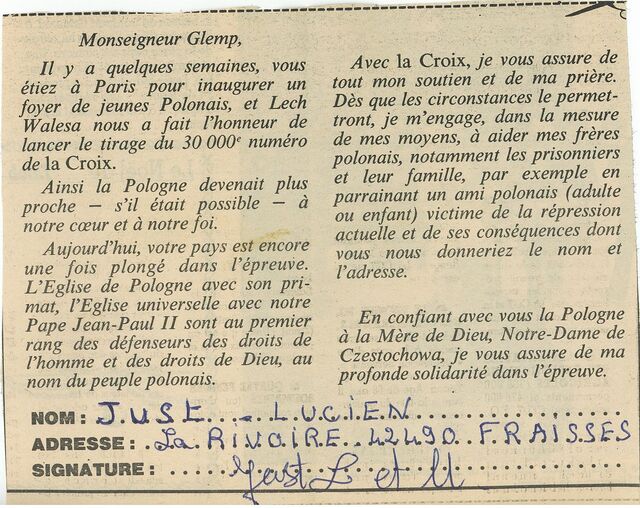 Monseigneur Glemp,
Il y a quelques semaines, vous
étiez à Paris pour inaugurer un
foyer de jeunes Polonais, et Lech
Walesa nous a fait l'honneur de
lancer le tirage du 30 000e numéro
de la Croix.
Ainsi la Pologne devenait plus
proche — s'il était possible — à
notre cœur et à notre foi.
Aujourd'hui, votre pays est encore
une fois plongé dans l'épreuve.
L'Eglise de Pologne avec son pri-
mat, l'Eglise universelle avec notre
Pape Jean-Paul II sont au premier
rang des défenseurs des droits de
l'homme et des droits de Dieu, au
nom du peuple polonais.
Avec la Croix, je vous assure de
tout mon soutien et de ma prière.
Dès que les circonstances le permet-
tront, je m'engage, dans la mesure
de mes moyens, à aider mes frères
polonais, notamment les prisonniers
et leur famille, par exemple en
parrainant un ami polonais (adulte
ou enfant) victime de la répression
actuelle et de ses conséquences dont
vous nous donneriez le nom et
l'adresse.
En confiant avec vous la Pologne
à la Mère de Dieu, Notre-Dame de
Czestochowa, je vous assure de ma
profonde solidarité dans l'épreuve.
NOM : JUST LUCIEN
ADRESSE : La RIVOIRE 42490 FRAISSES
SIGNATURE : Just L et M